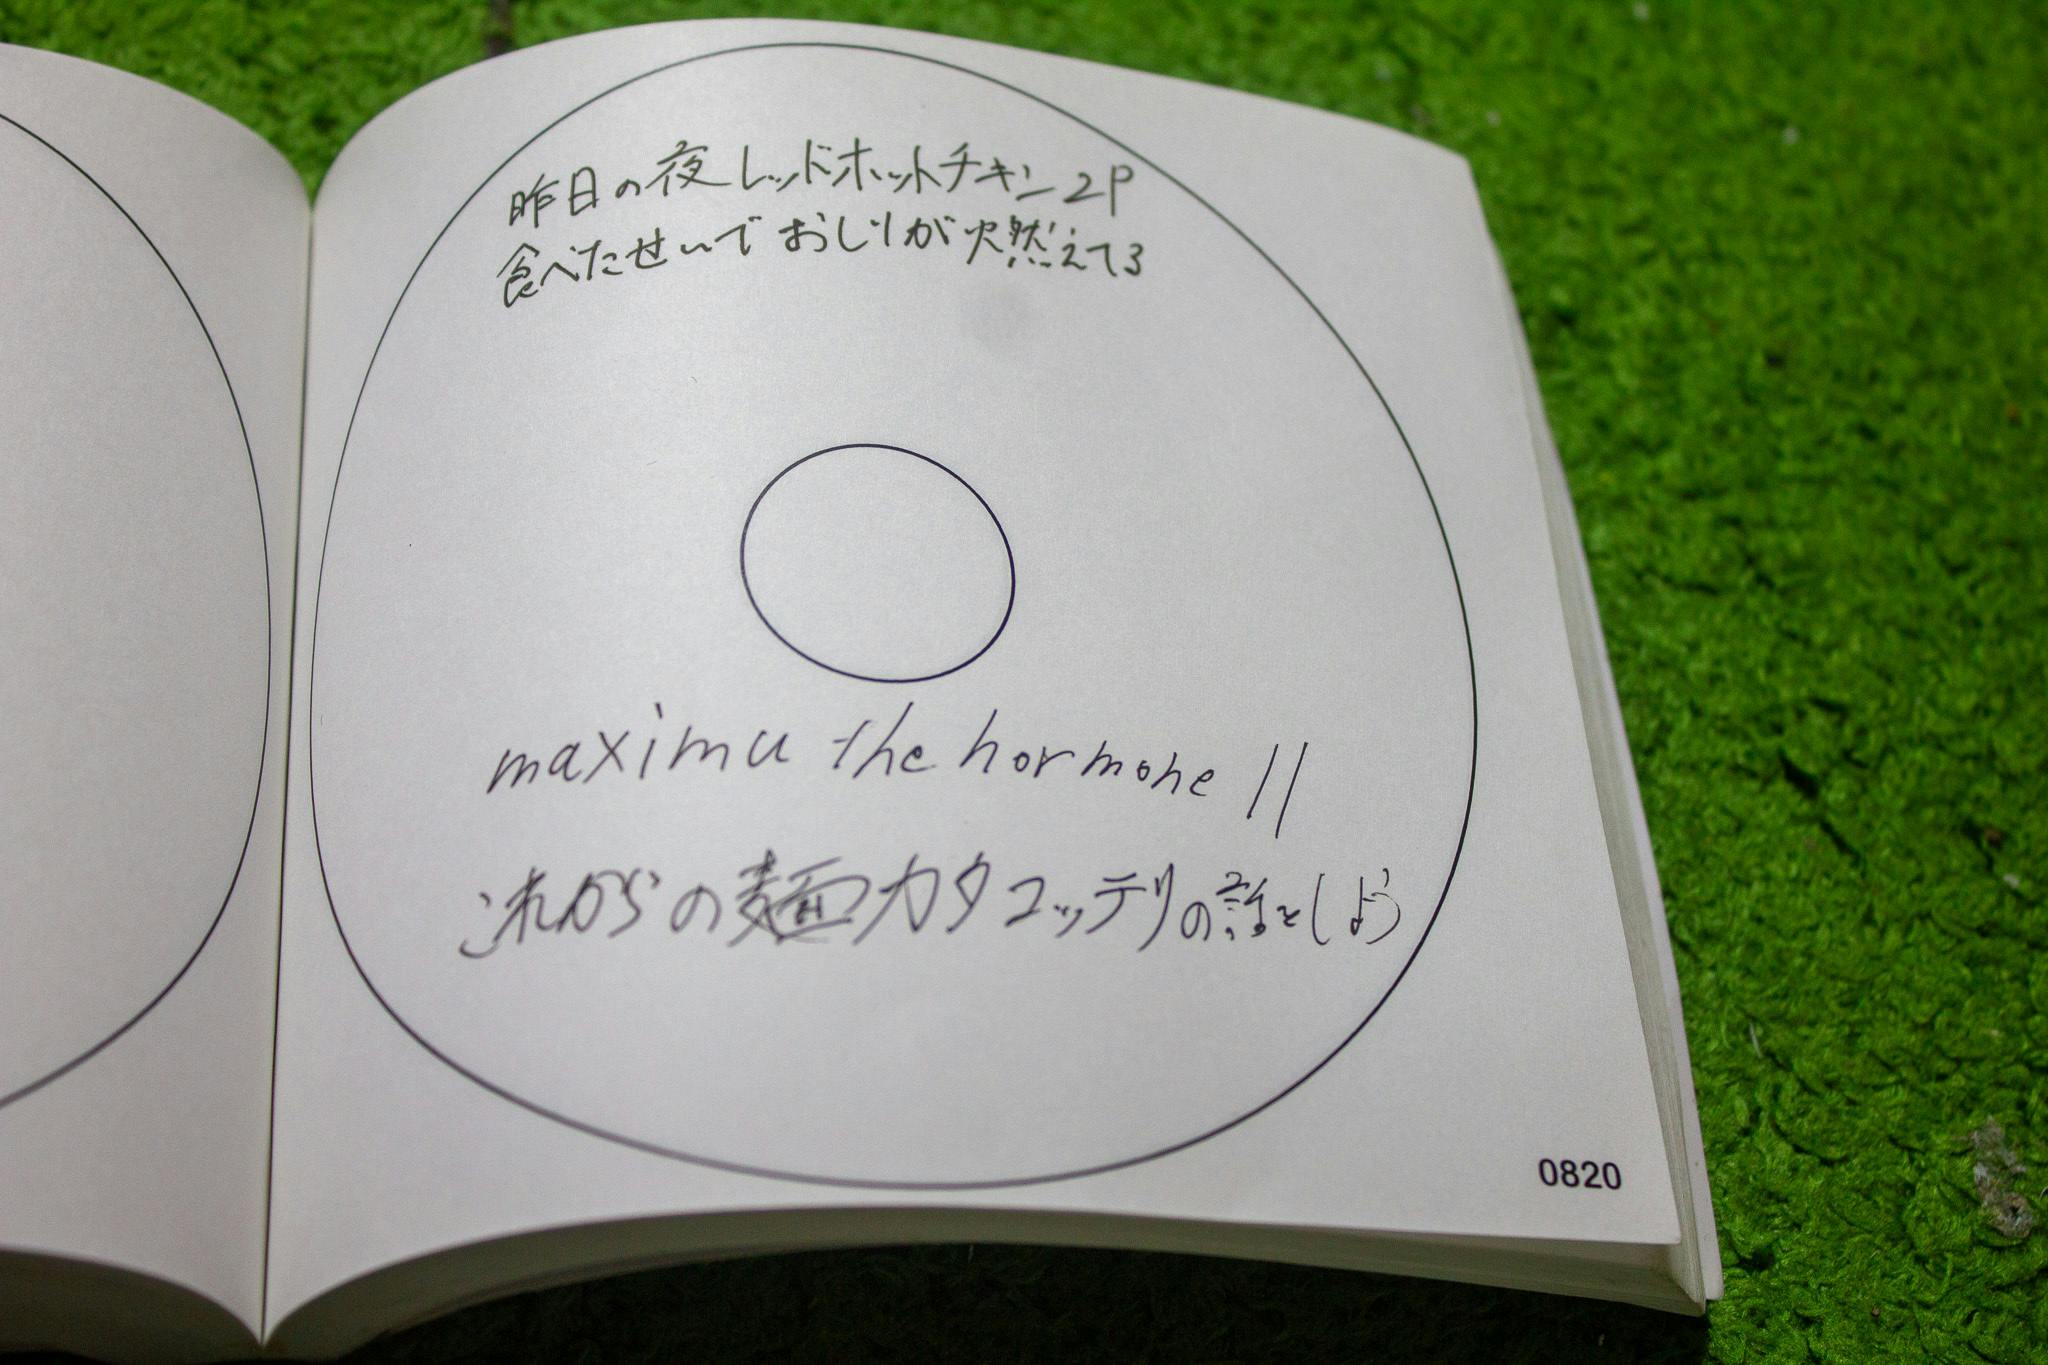 昨日の夜レッドホットチキン2P
食べたせいでおしりが燃えてる
maximu the hormone II
これからの麺カタコッテリの話をしよう
0820